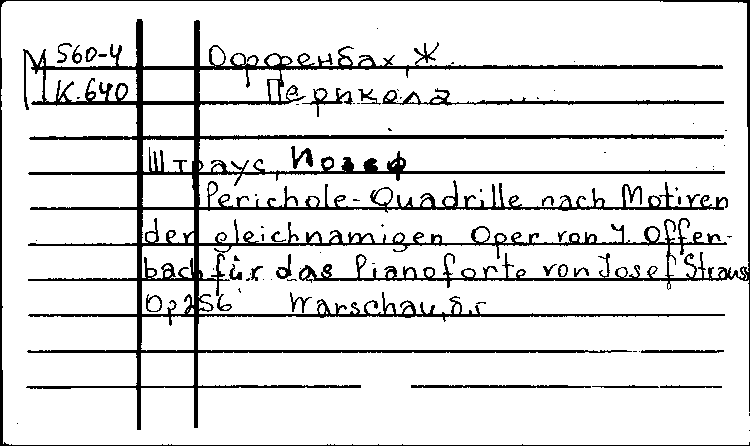 М 560-4 Оффенбах, Ж.
К. 640 Перикола .....
Штраус, Иозеф
Perichole-Quadrille nach Motiven
der gleichnamigen Oper von J. Offen-
bach für das Pianoforte von Josef Strauss
Op 256 Warschau, б.г